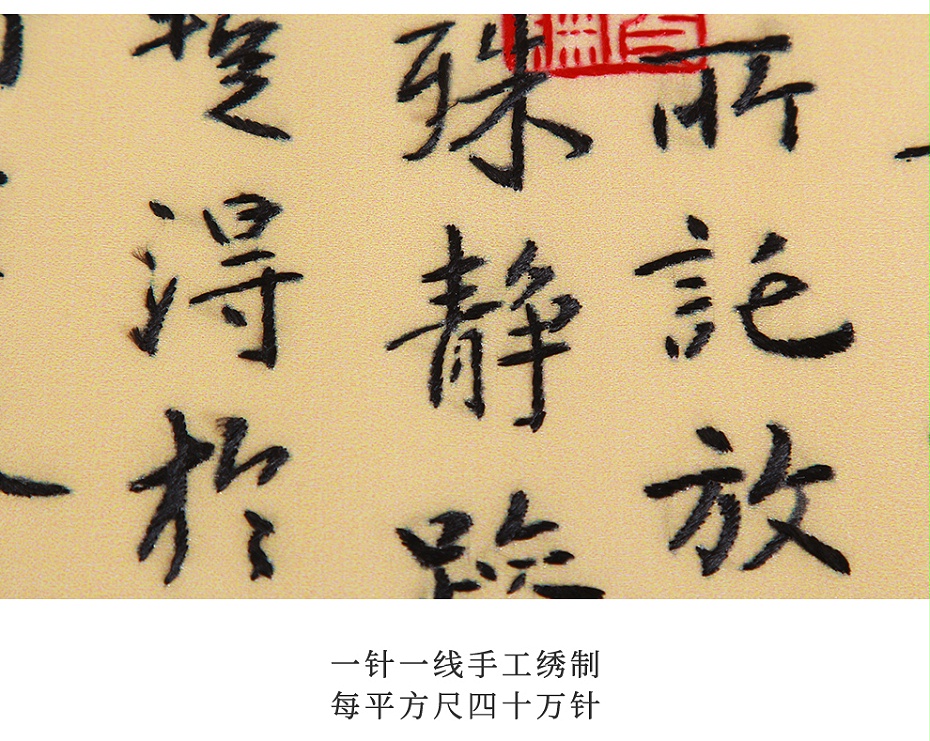 所託放
殊靜
得於
一针一线手工绣制
每平方尺四十万针